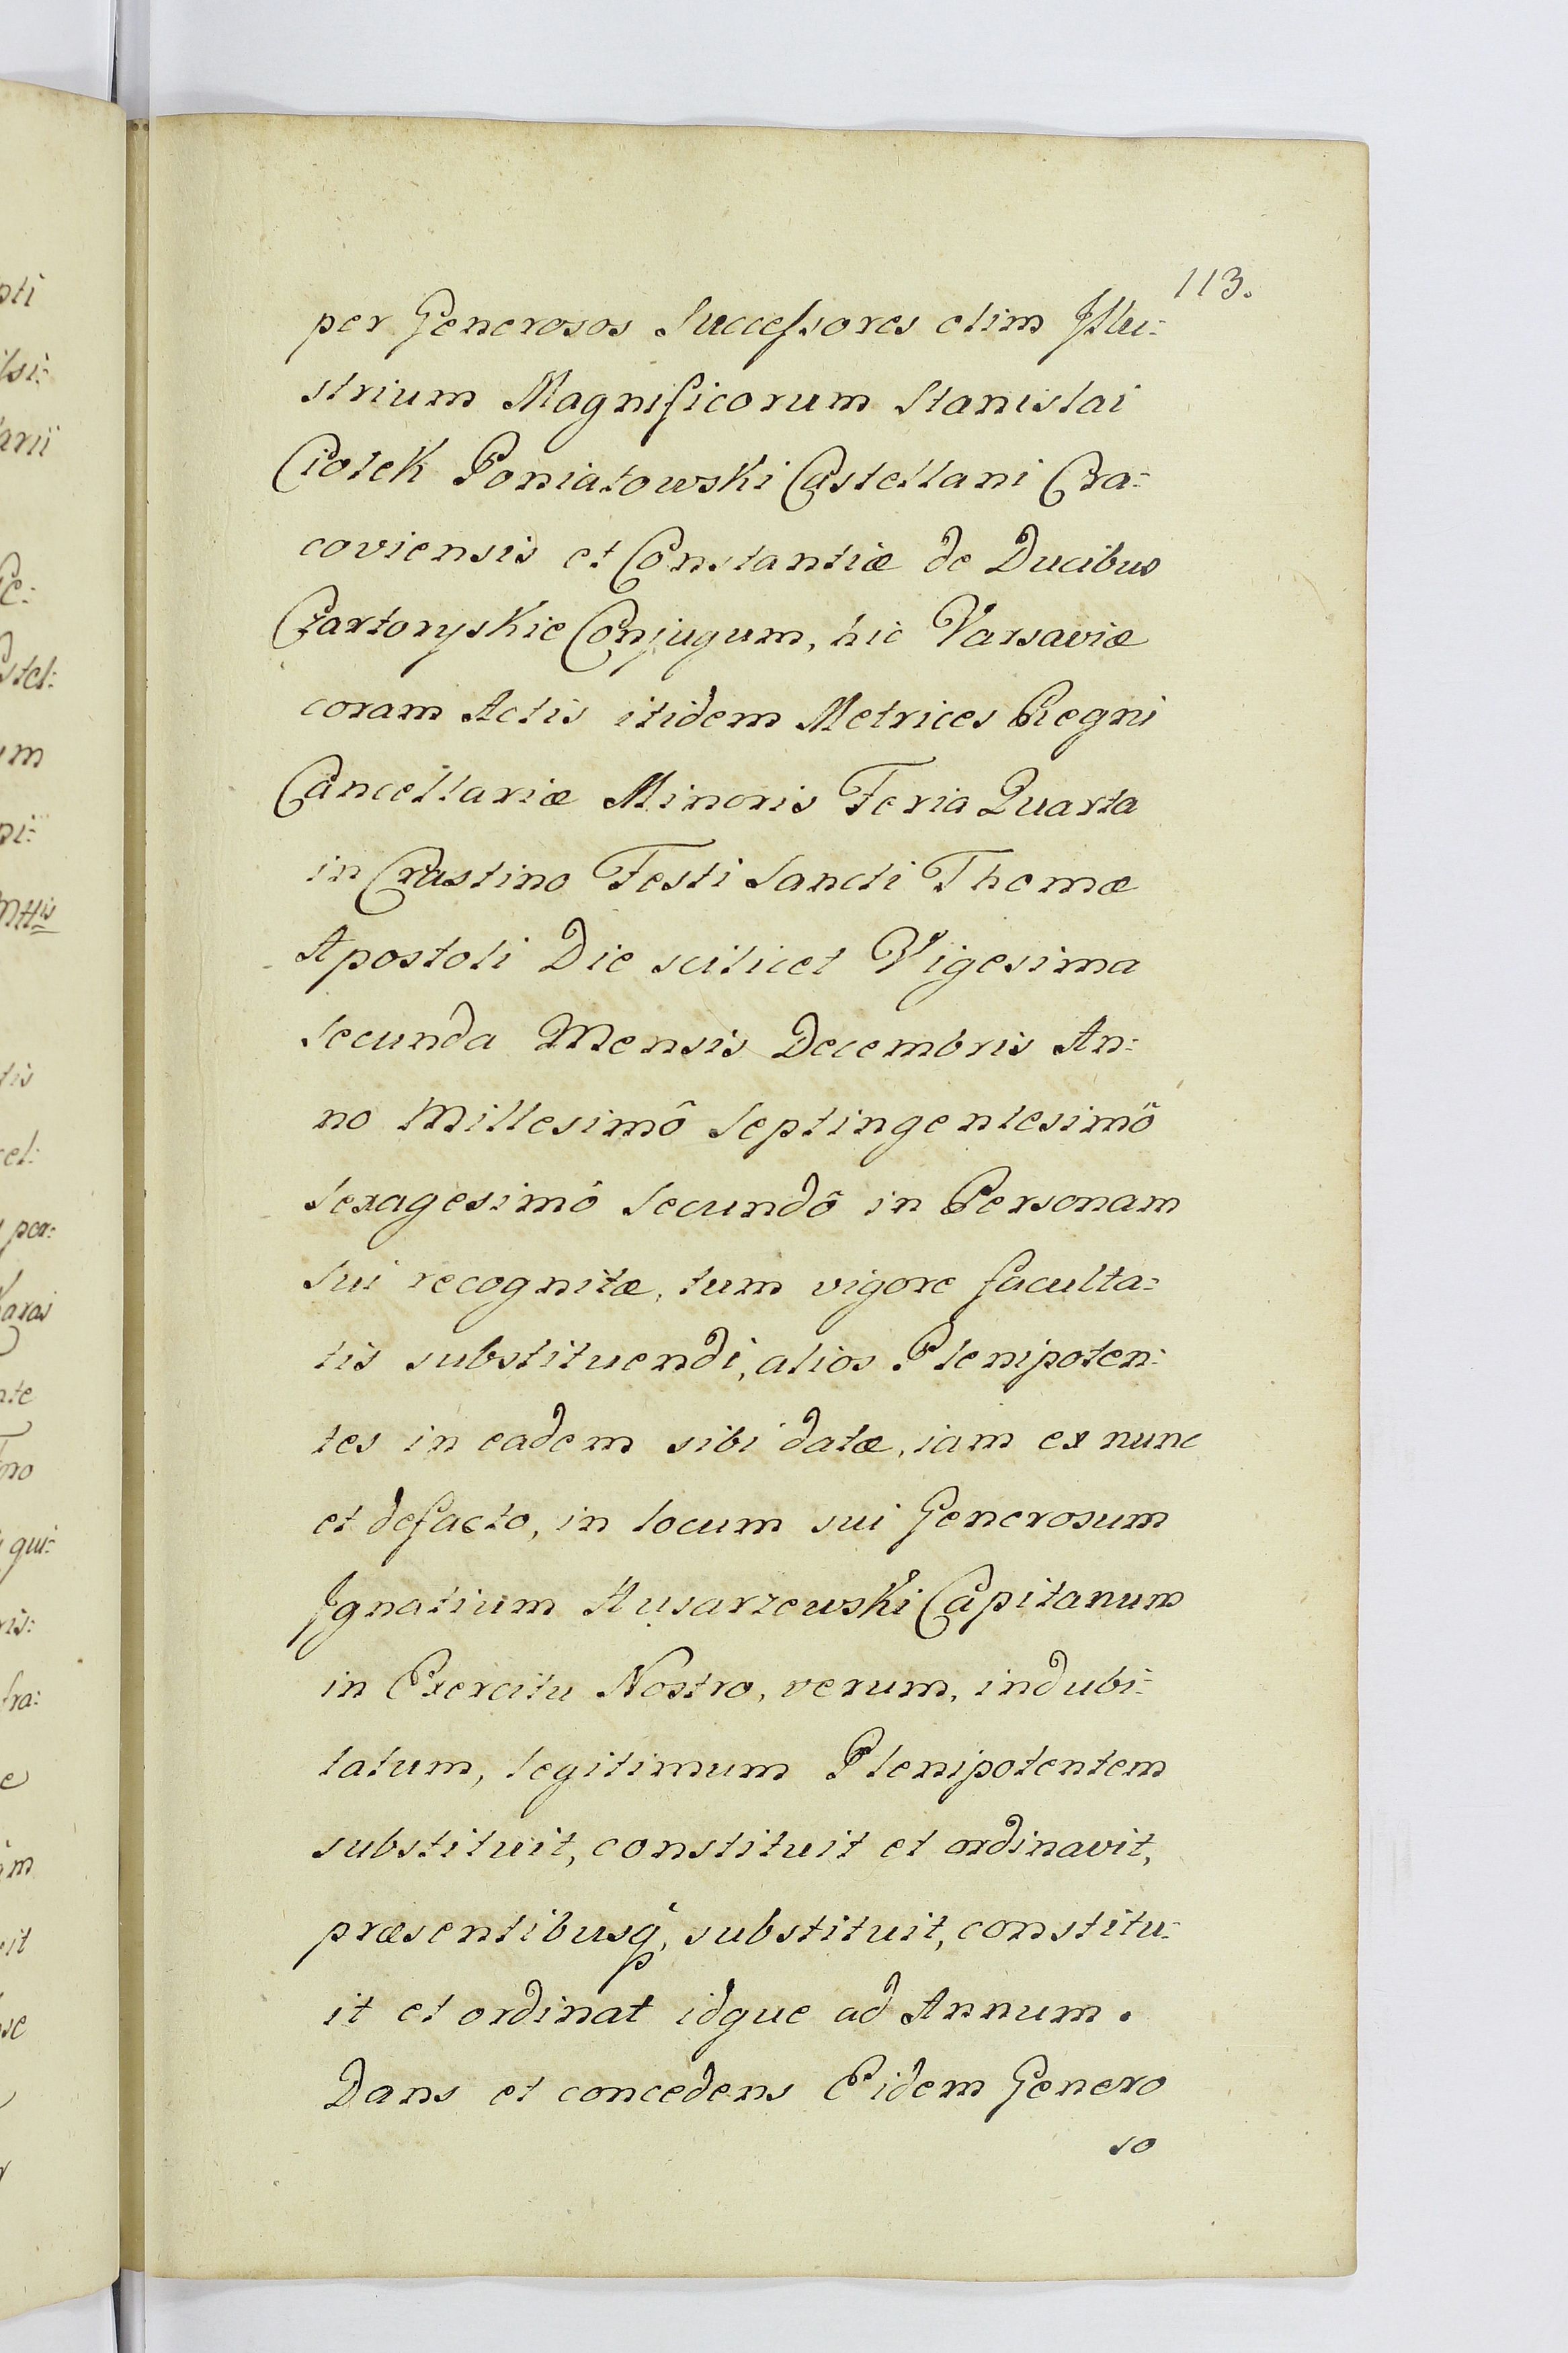 113.
per Generosos Successores olim Illu:
strium Magnificorum Stanislai
Ciolek Poniatowski Castellani Cra:
coviensis et Constantiæ de Ducibus
Czartoryskie Conjugum, hic Varsaviæ
coram Actis itidem Metrices Regni
Cancellariæ Minoris Feria Quarta
in Crastino Festi Sancti Thomæ
Apostoli Die scilicet Vigesima
Secunda Mensis Decembris An:
no Millesimô Septingentesimô
Sexagesimô Secundô in Personam
Sui recognitæ, tum vigore faculta:
tis substituendi, alios Plenipoten:
tes in eadem sibi datæ, iam ex nunc
et defacto, in locum sui Generosum
Ignatium Husarzewski Capitanum
in Exercitu Nostro, verum, indubi:
tatum, legitimum Plenipotentem
substituit, constituit et ordinavit,
præsentibusq, substituit, constitu:
it et ordinat idque ad Annum.
Dans et concedens Eidem Genero
so